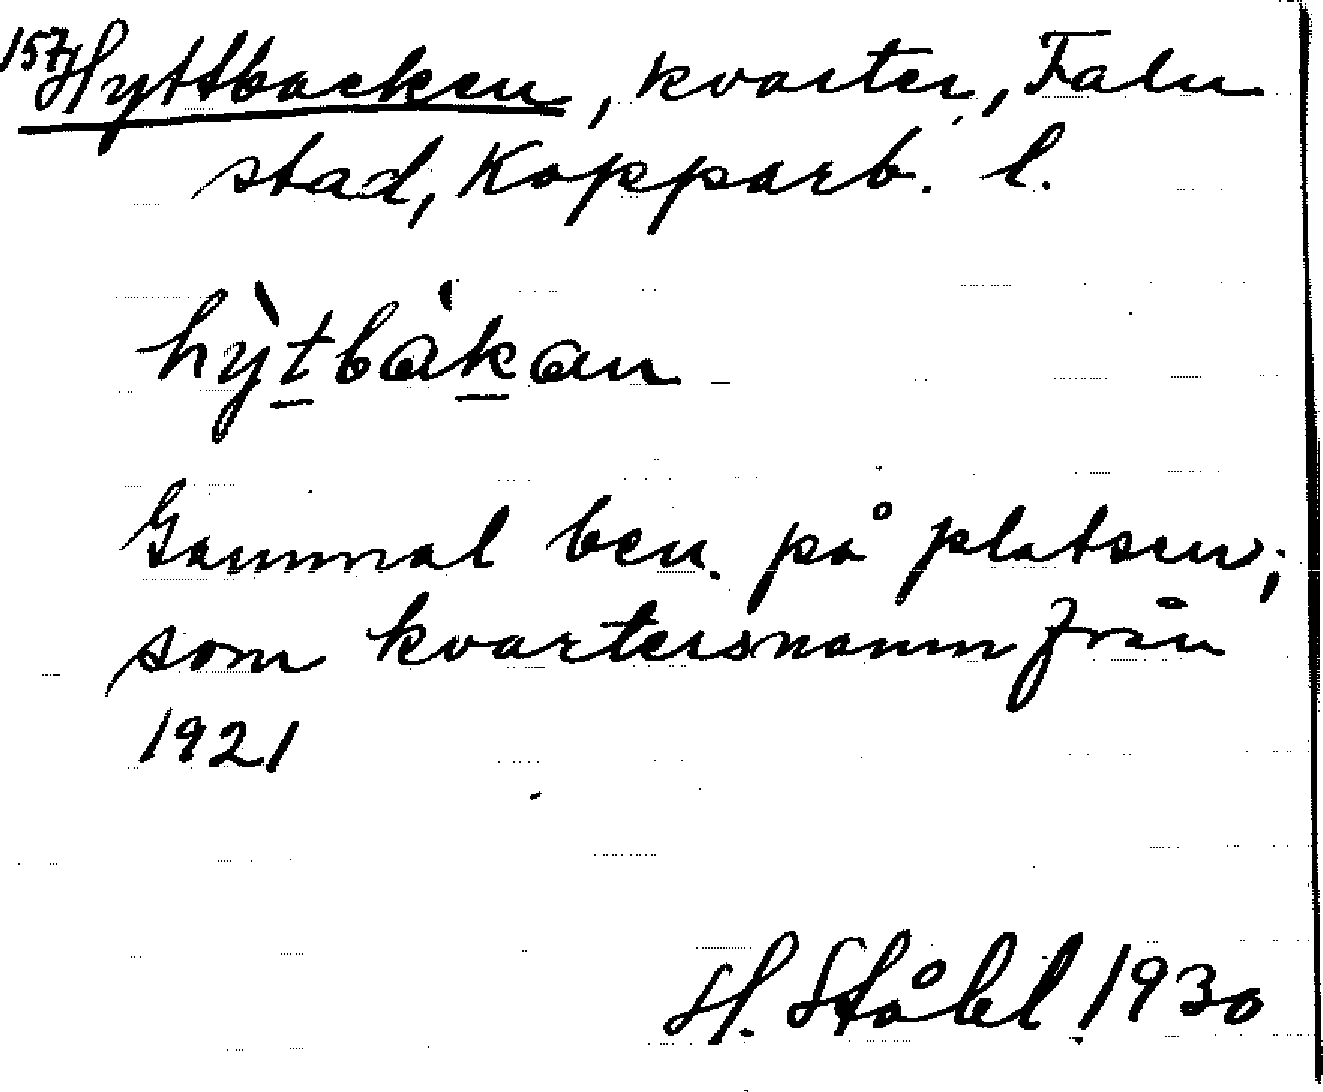 157 Hyttbacken, kvarter, Falu
stad, Kopparb. l.
hỳtbákan
Gammal ben. på platsen;
som kvartersnamn från
1921
H. Ståhl 1930